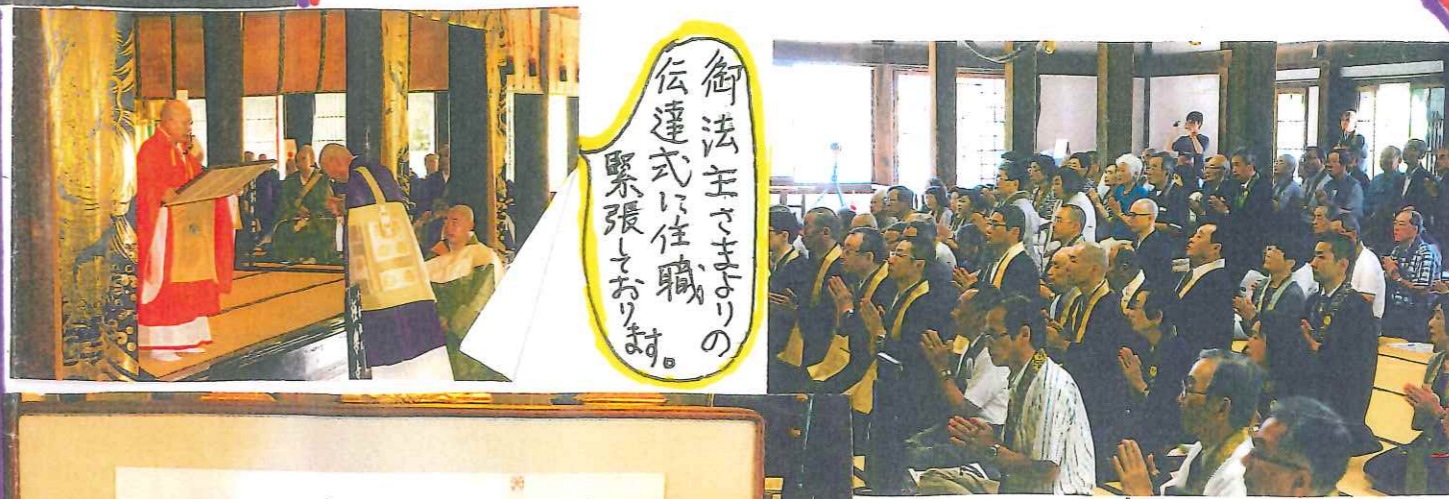 御法主さまよりの
伝達式に住職
緊張しております。